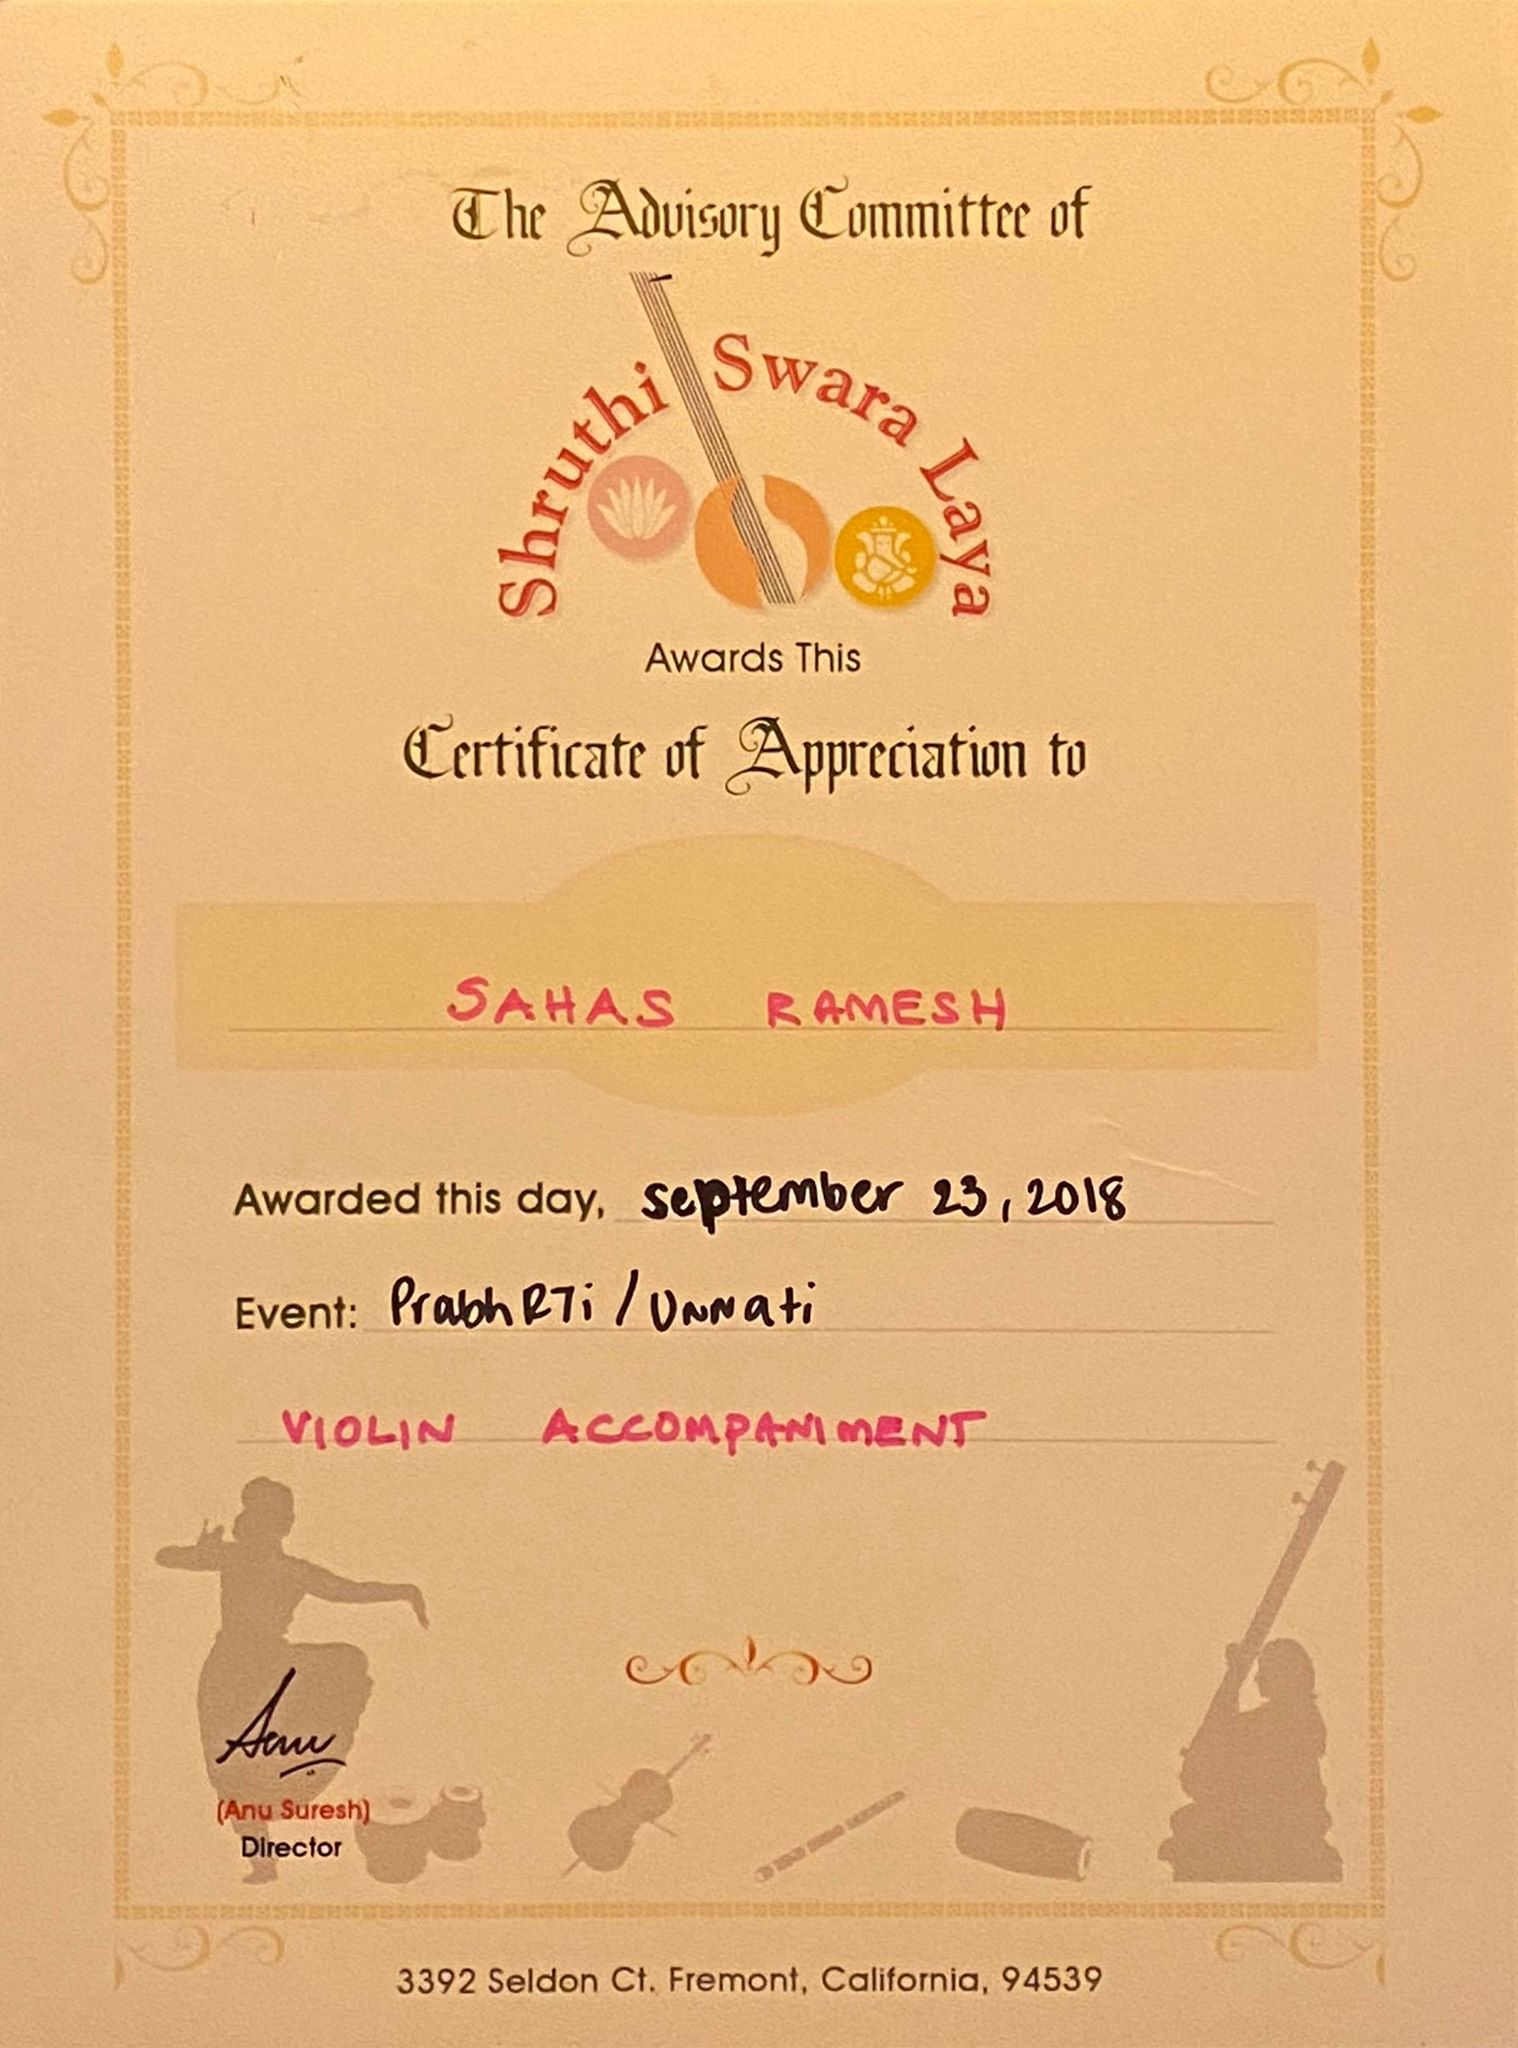 The Advisory Committee of
Shruthi Swara Laya
Awards This
Certificate of Appreciation to
SAHAS RAMESH
Awarded this day, september 23, 2018
Event: PrabhRTi / UNNati
VIOLIN ACCOMPANIMENT
Anu
(Anu Suresh)
Director
3392 Seldon Ct. Fremont, California, 94539